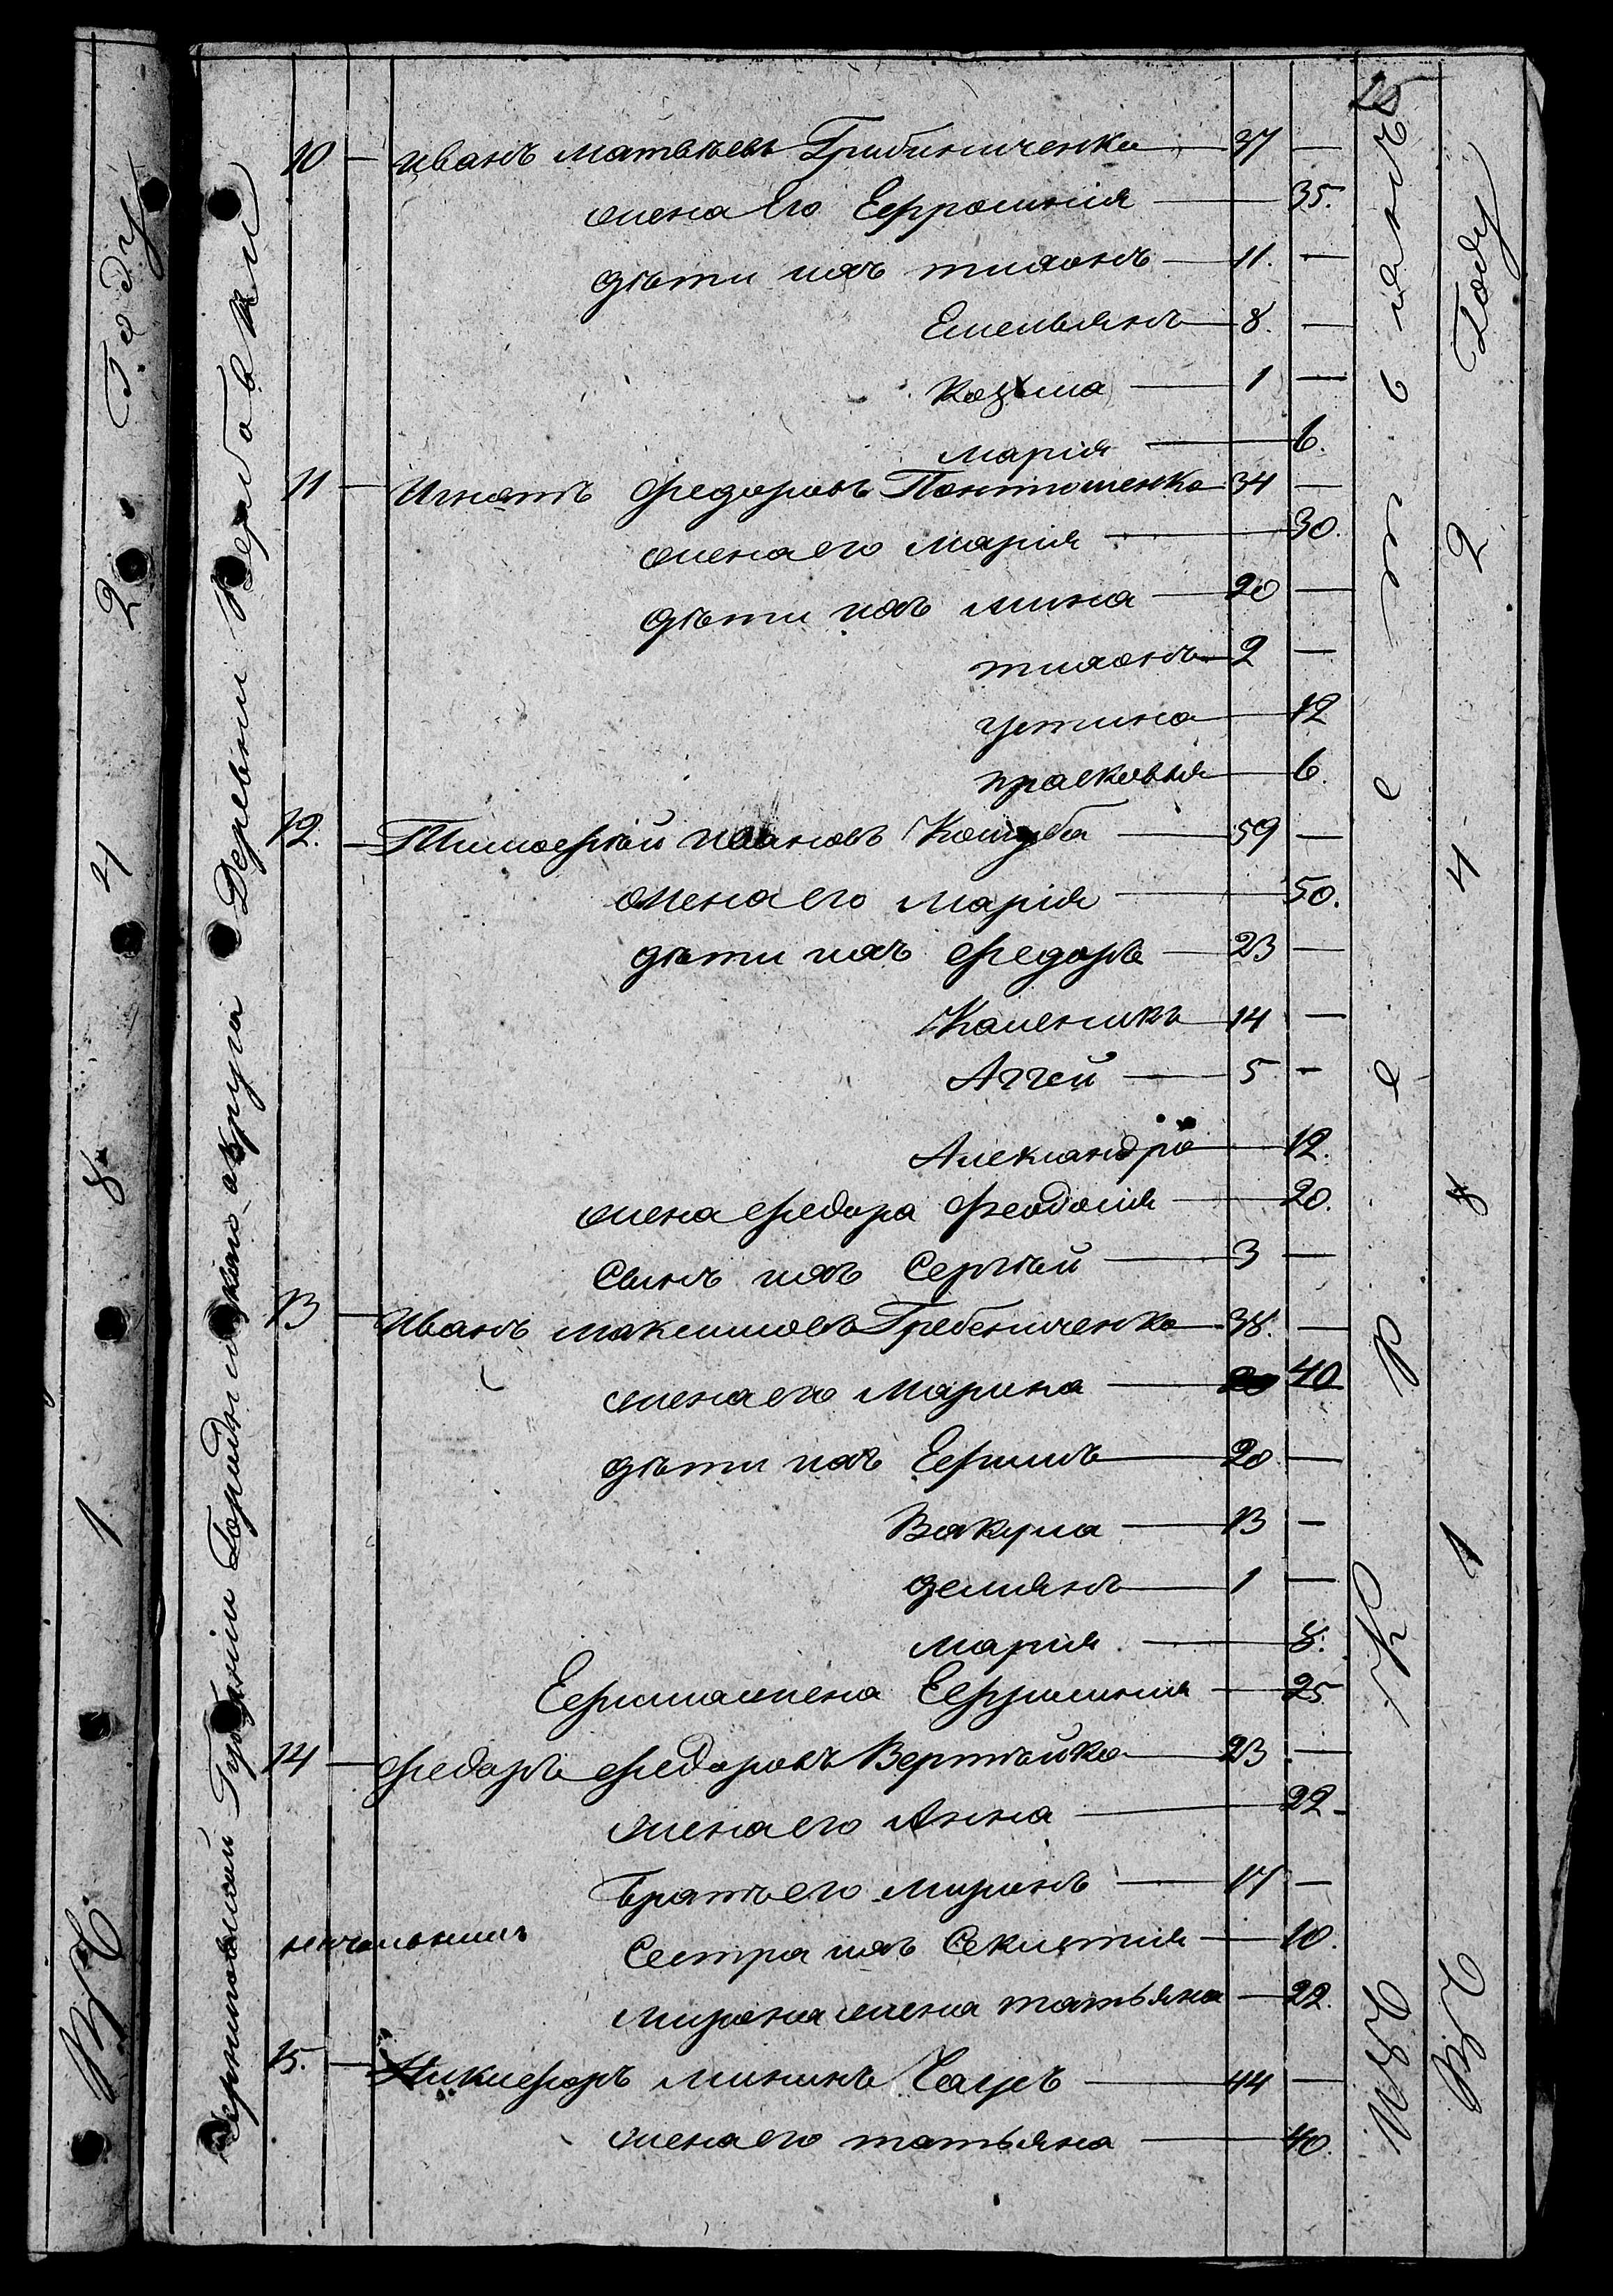 25
10 — Иванъ Матвѣевъ Грибиниченко — 37 —
жена Его Ефросинія — 35.
дѣти ихъ тихонъ — 11. —
Емельянъ — 8. —
Козьма — 1 —
Марія — 6.
11 — Игнатъ Федоровъ Пантюшенко 34 —
жена его Марія — 30.
дѣти ихъ мина — 20 —
тихонъ — 2 —
устина — 12
прасковья — 6.
12. — Тимофѣй Ивановъ Кошуба — 59 —
жена его Марія — 50.
дѣти ихъ Федоръ — 23 —
Каленикъ — 14 —
Аггей — 5 —
Александра — 12.
жена Федора Феодосія — 20.
Сынъ ихъ Сергѣй — 3 —
13 — Иванъ Максимовъ Гребениченко — 38. —
жена его Марина — 40
дѣти ихъ Ефимъ — 20 —
Вакула — 13 —
демянъ — 1 —
Мария — 8.
Ефима жена Ефросиния — 25
14 — Федоръ Федоровъ Вертѣйко — 23 —
жена его Анна — 22 —
братъ его Миронъ — 17 —
Сестра ихъ Секлетия — 10.
Мирона жена татьяна — 22.
15. — Никифоръ Мининъ — 44 —
жена его татьяна — 40.
Черниговской Губерніи Городницкого округа Деревни Вербовки
Въ 1 8 4 2 Году
Изъ Крестьянъ
Въ 1 8 4 2 Году